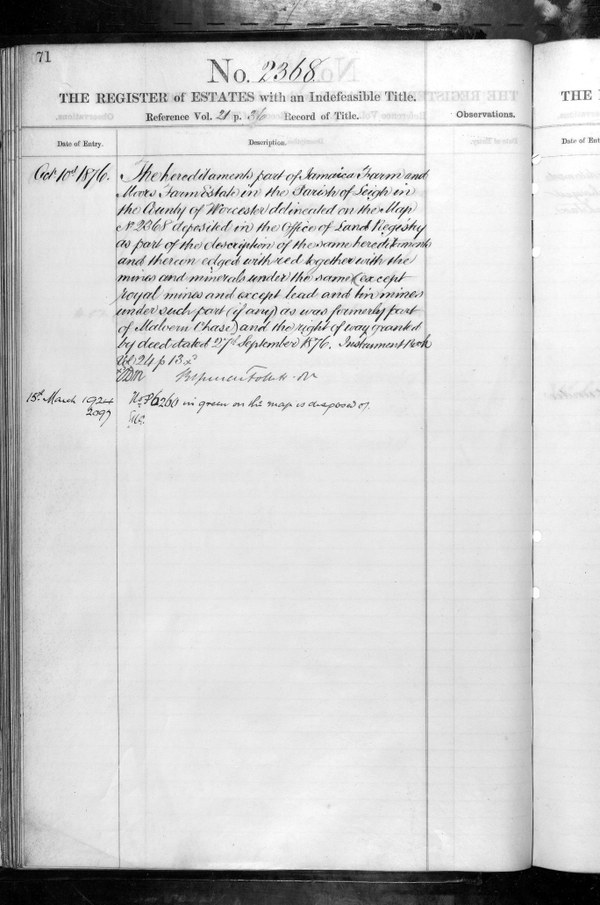 71
No. 2368
THE REGISTER of ESTATES with an Indefeasible Title.
Reference Vol. 21 p. 36 Record of Title.
Observations.
Date of Entry.
Description.
Octr 10th 1876.
The hereditaments part of Jamaica Farm and
Moors Farm Estate in the Parish of Leigh in
the County of Worcester delineated on the Map
No 2368 deposited in the Office of Land Registry
as part of the description of the same hereditaments
and thereon edged with red together with the
mines and minerals under the same (except
royal mines and except lead and tin mines
under such part (if any) as was formerly part
of Malvern Chase) and the right of way granted
by deed dated 27th September 1876. Instrument Book
Vol 24 p 13
15th March 1924
2097
in green on this map is disposed of.
THE
Date of Ent